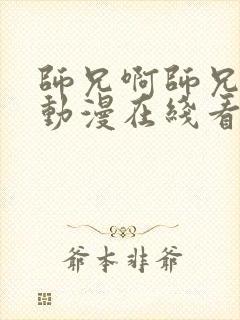 師兄啊師兄
動漫在綫看
爺本非爺